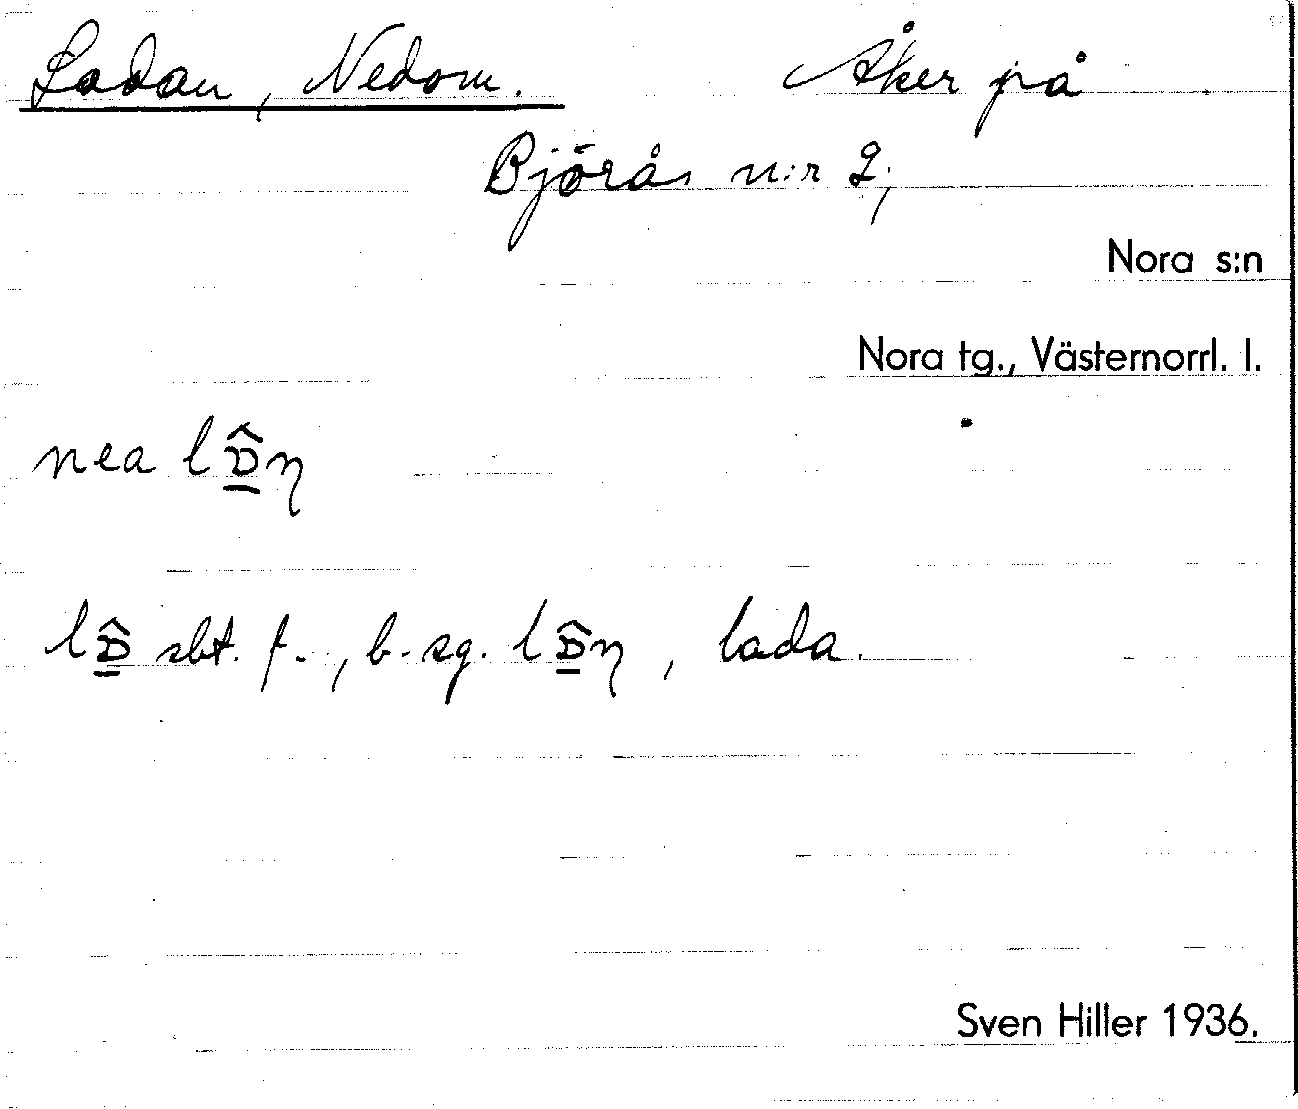 Ladan, Nedom. Åker på
Björås n:r 2;
Nora s:n
Nora tg., Västernorrl. l.
nea lɒ̲̂ŋ
lɒ̲̂ sbt. f., b. sg. lɒ̲̂ŋ, lada.
Sven Hiller 1936.